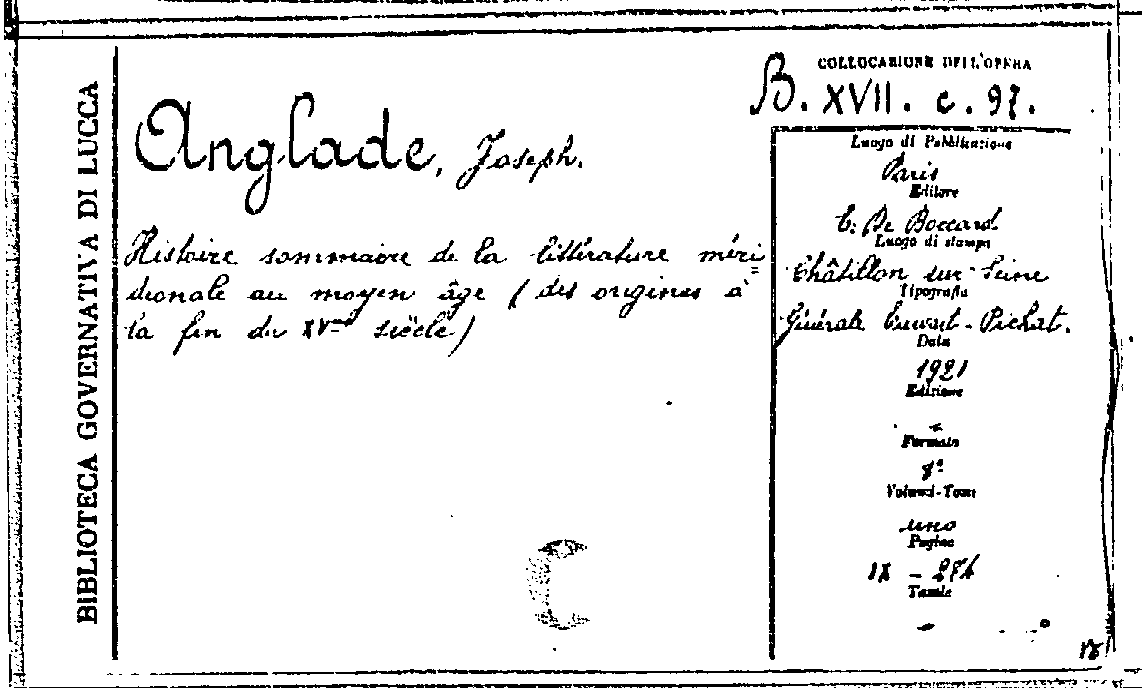 BIBLIOTECA GOVERNATIVA DI LUCCA
COLLOCAZIONE DELL'OPERA
B. XVII. c. 97.
Anglade, Joseph.
Histoire sommaire de la littérature méri=
dionale au moyen âge (des origines à
la fin du XVme siècle)
Luogo di Pubblicazione
Paris
Editore
E. De Boccard
Luogo di stampa
Châtillon sur Seine
Tipografia
Générale - Pichat.
Data
1921
Edizione
-
Formato
8º
Volumi-Tomi
uno
Pagine
IX - 274
Tavole
-
C